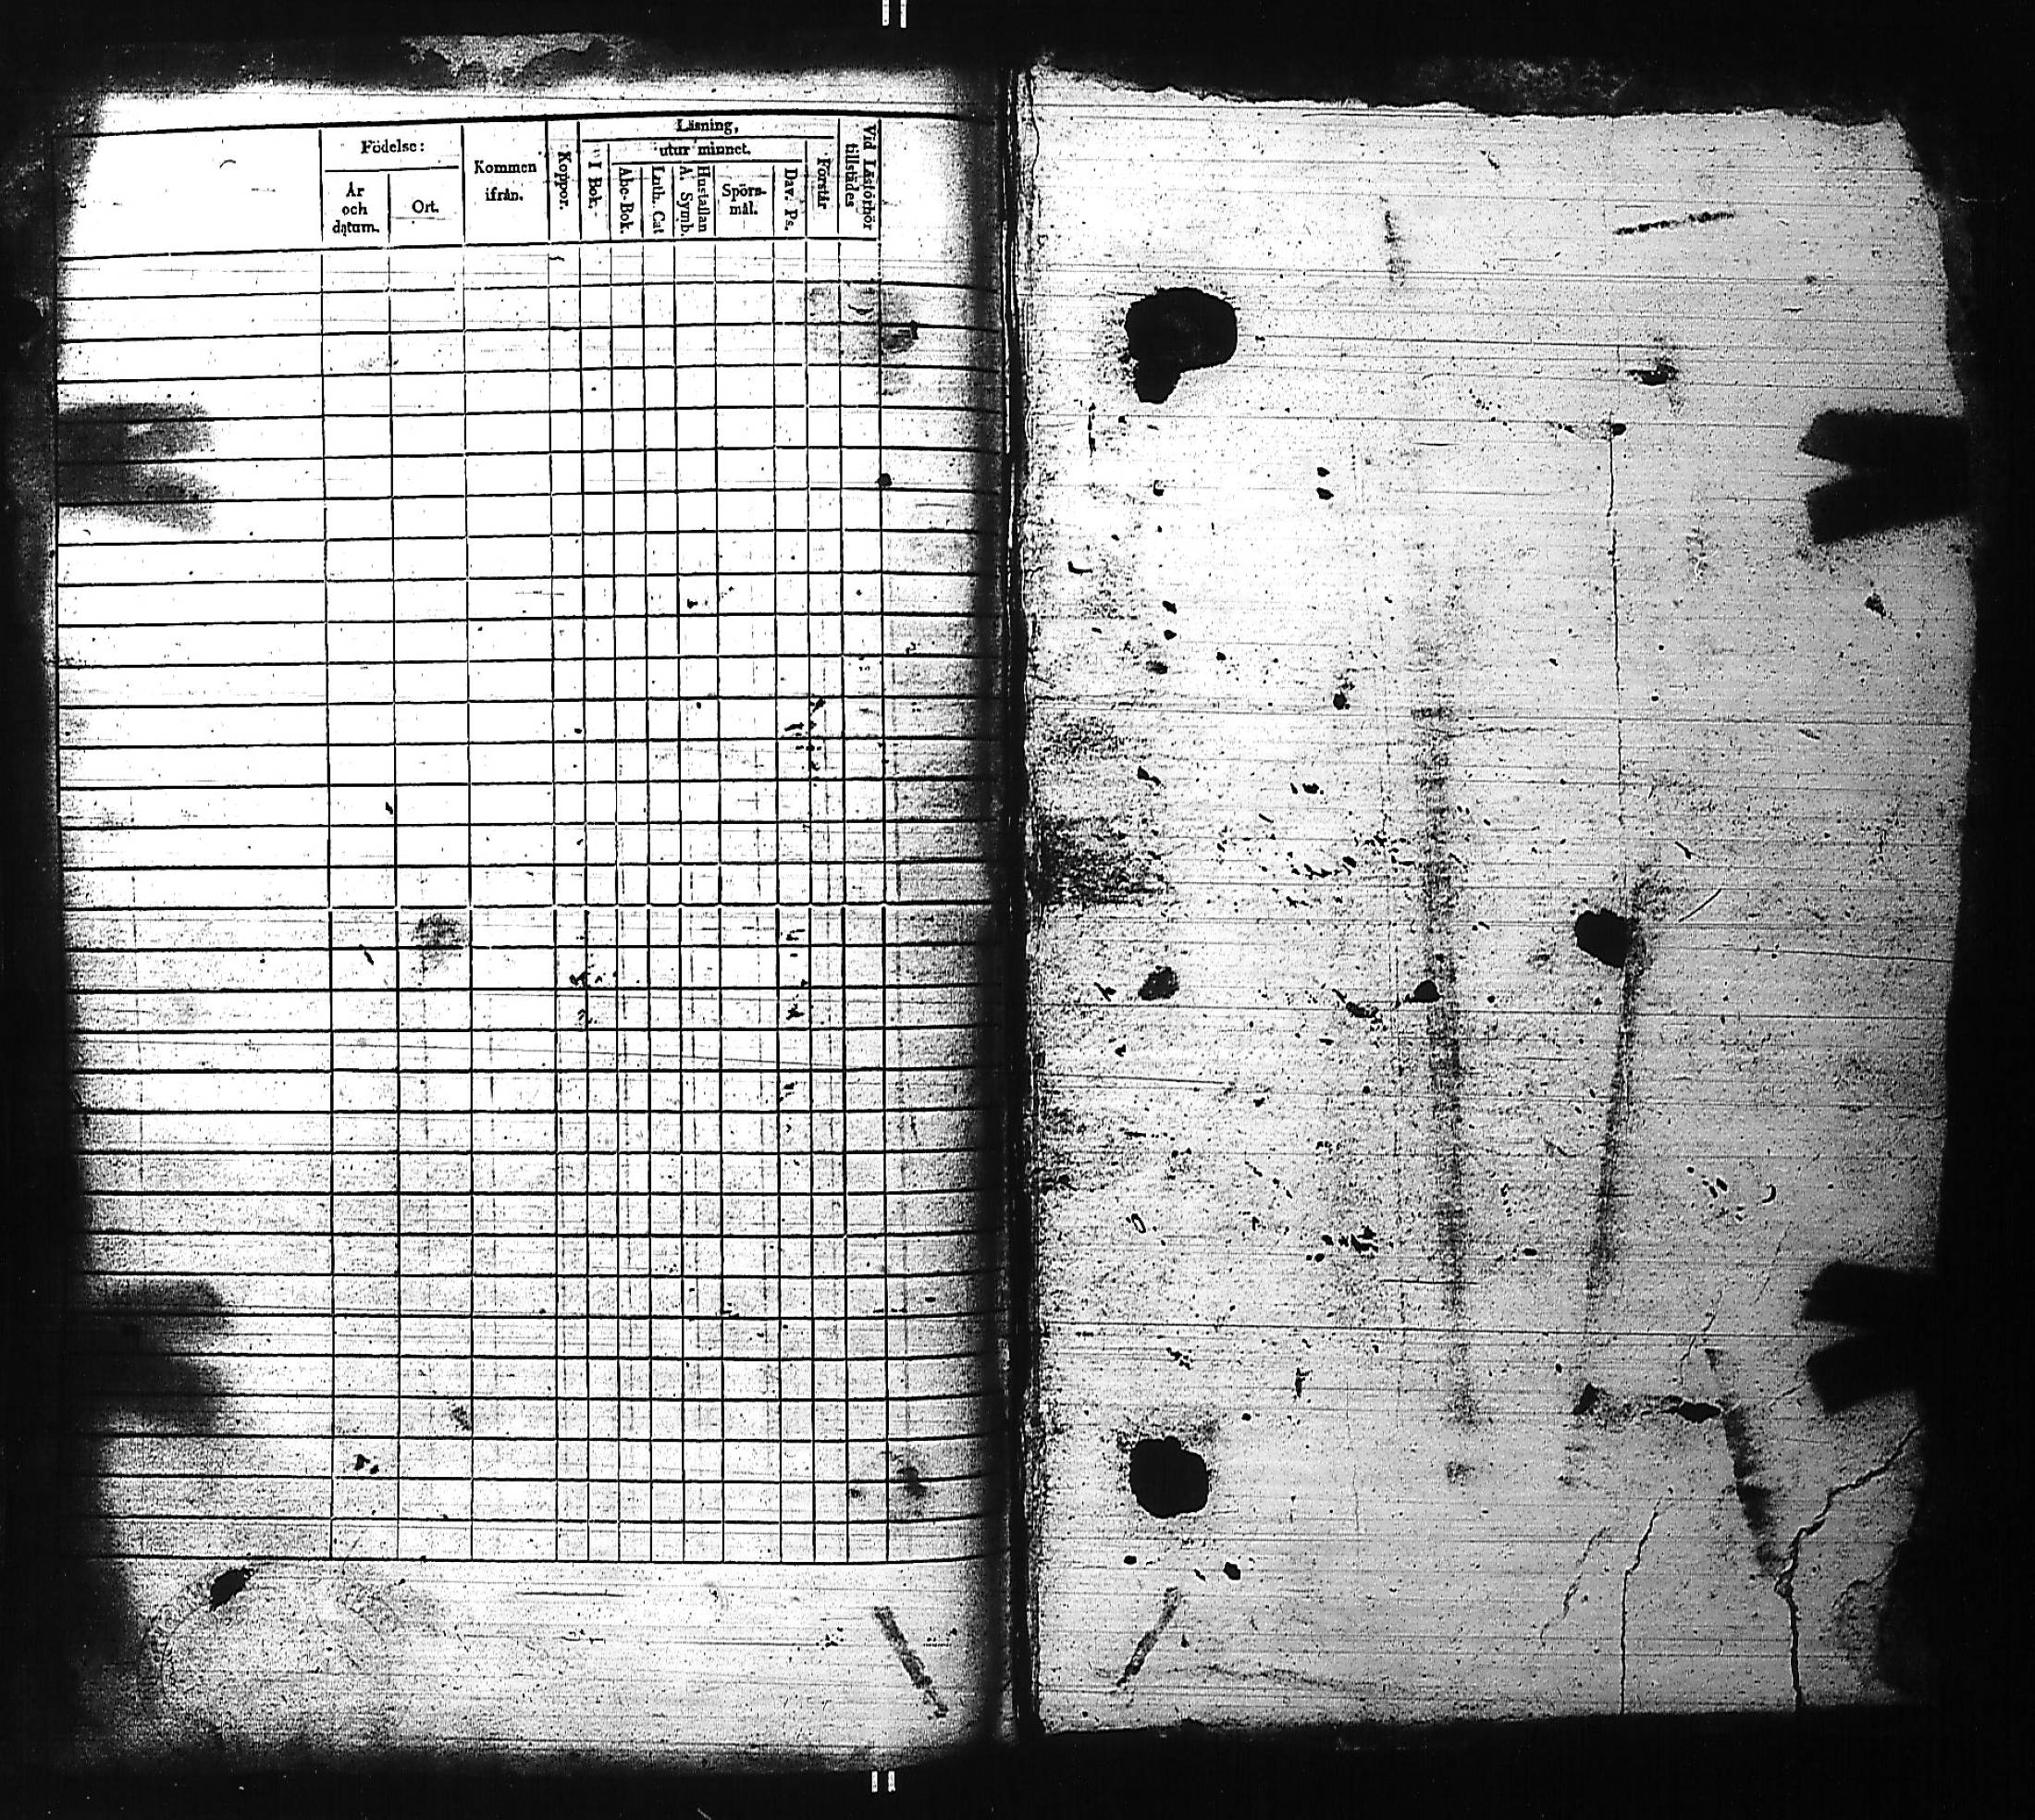 Födelse:
År
och
datum.
Ort.
Kommen
ifrån.
Koppor.
Läsning,
I Bok.
utur minnet.
Abc-Bok.
Luth. Cat
Hustaflan
A. Symb.
Spörs-
mål.
Dav. Ps.
Förstår
Vid Läsförhör
tillstädes